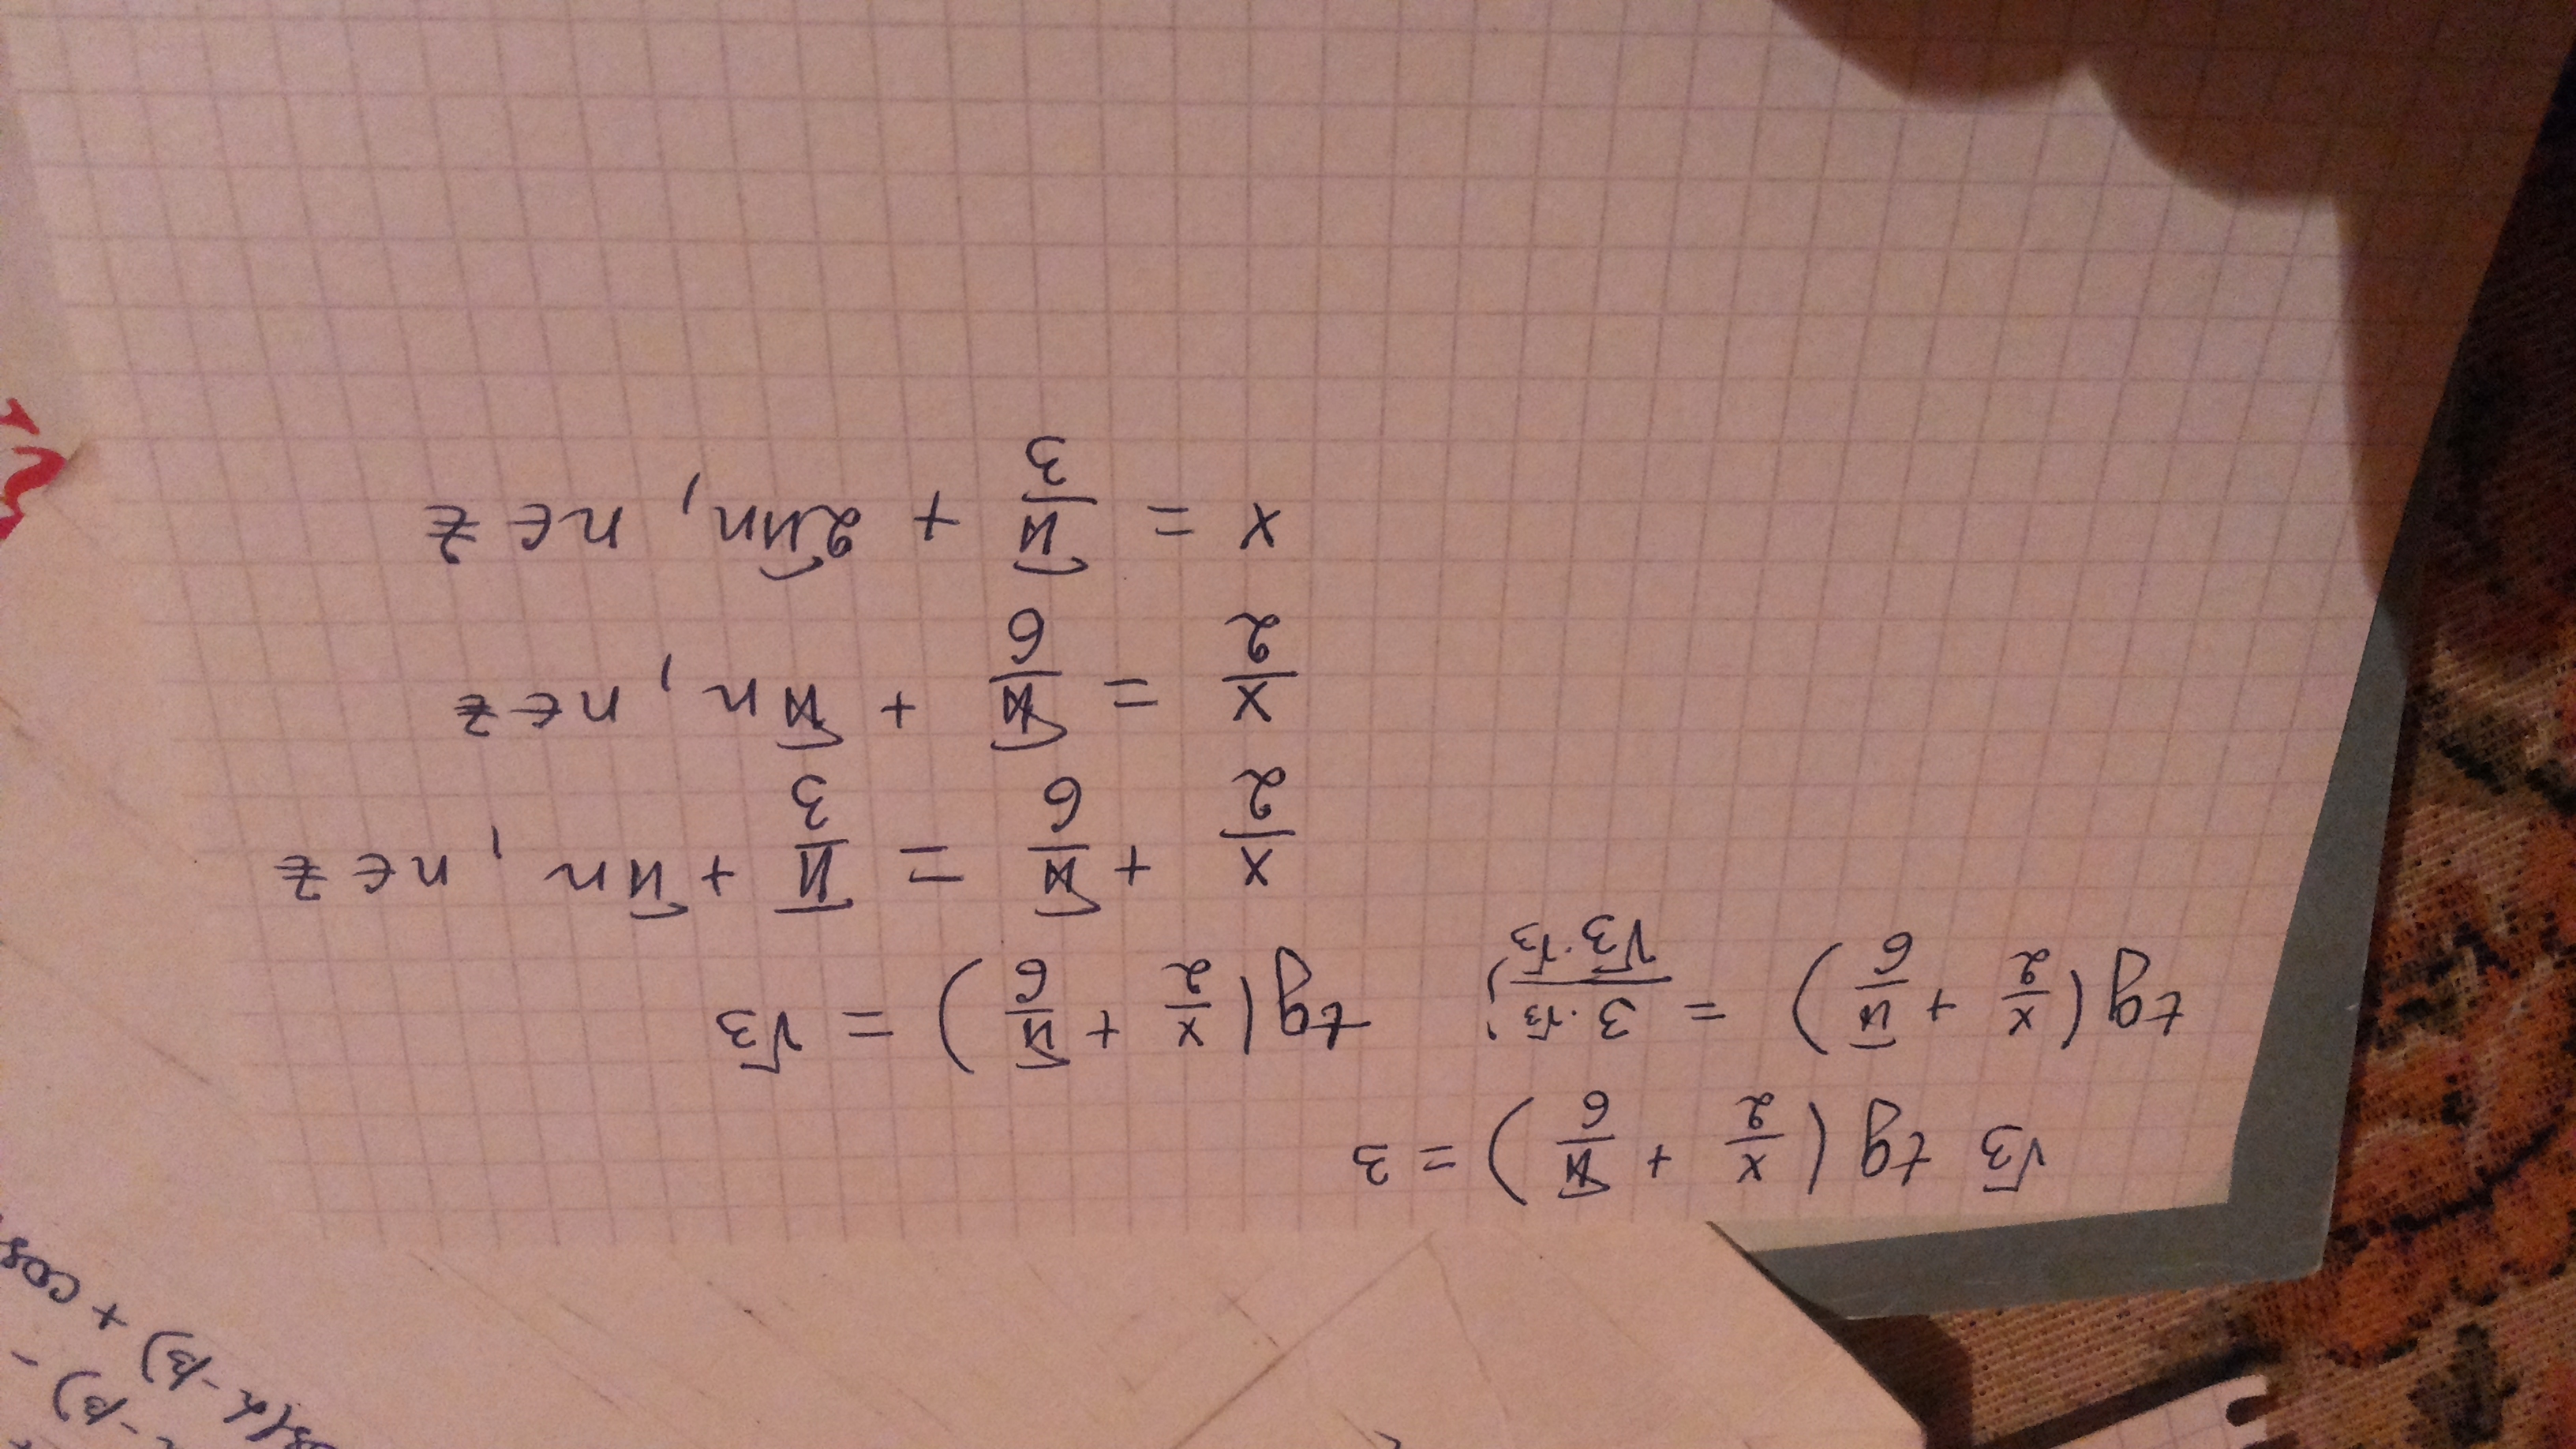 √3 tg(x/2 + π/6) = 3
tg(x/2 + π/6) = 3·√3/√3·√3; tg(x/2 + π/6) = √3
x/2 + π/6 = π/3 + πn, n∈Z
x/2 = π/6 + πn, n∈Z
x = π/3 + 2πn, n∈Z
- β) -
(α - β) + cos